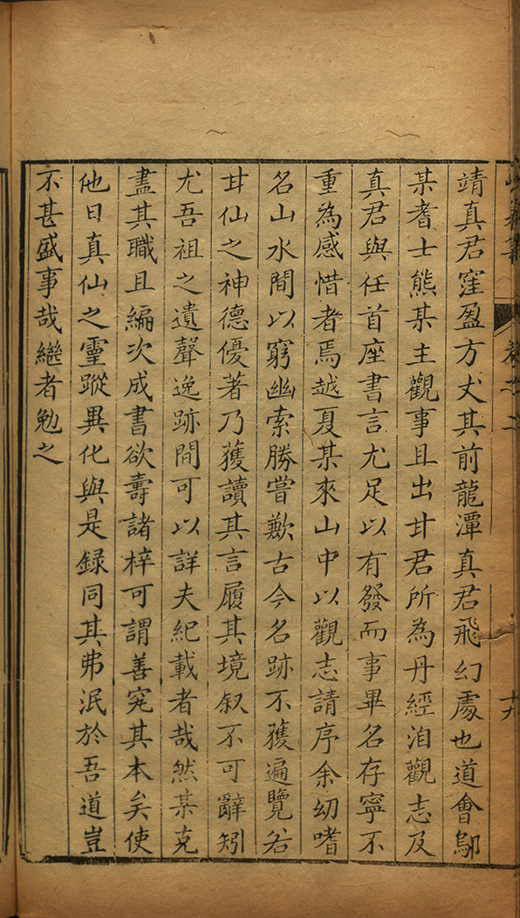 靖真君窪盈方丈其前龍潭真君飛幻處也道會鄔
某耆士熊某主觀事且出甘君所為丹經洎觀志及
真君與任首座書言尤足以有發而事畢名存寧不
重為感惜者焉越夏某來山中以觀志請序余幼嗜
名山水間以窮幽索勝嘗歎古今名跡不獲遍覽若
甘仙之神德優著乃獲讀其言履其境叙不可辭矧
尤吾祖之遺聲逸跡間可以詳夫紀載者哉然某克
盡其職且編次成書欲壽諸梓可謂善究其本矣使
他日真仙之靈蹤異化與是録同其弗泯於吾道豈
不甚盛事哉繼者勉之